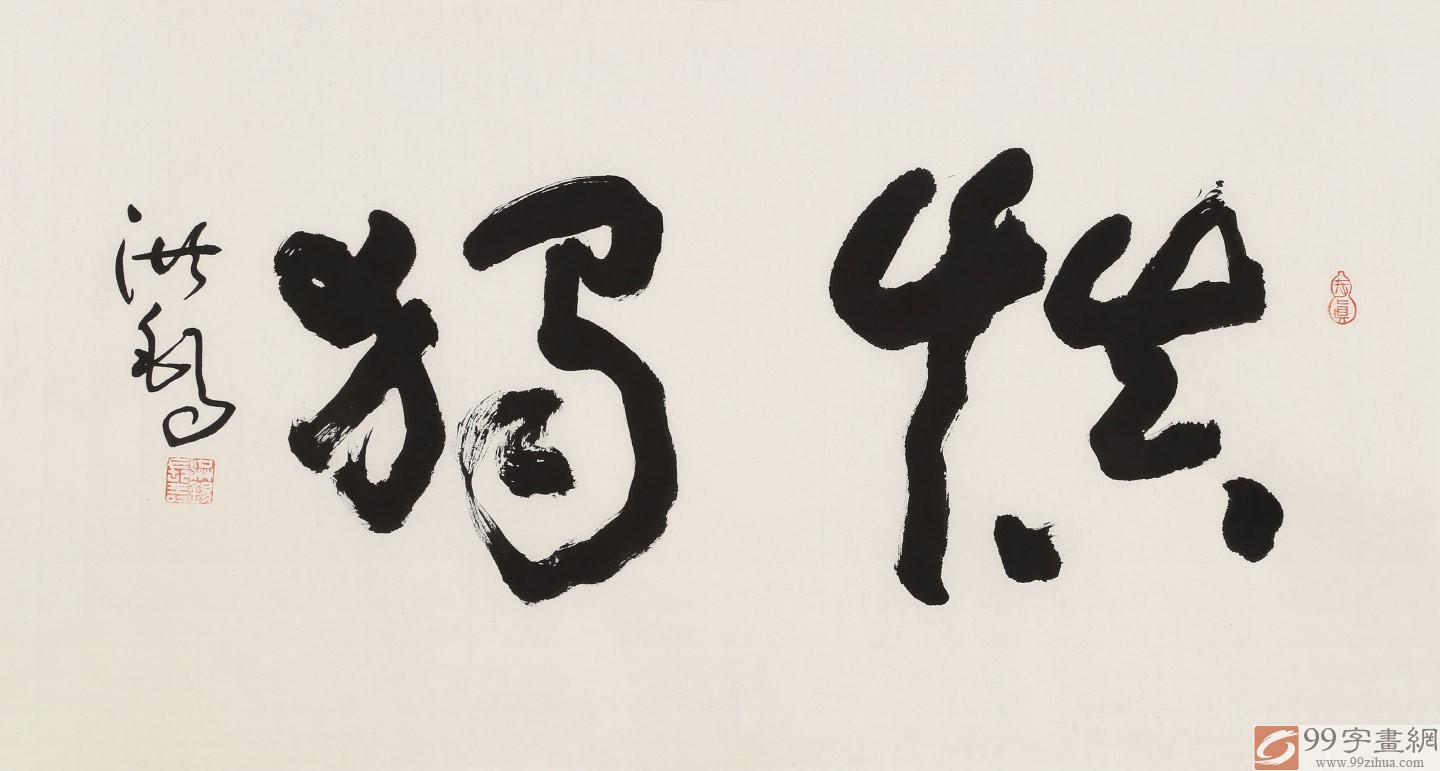 慎獨
洪
99字畫網
www.99zihua.com